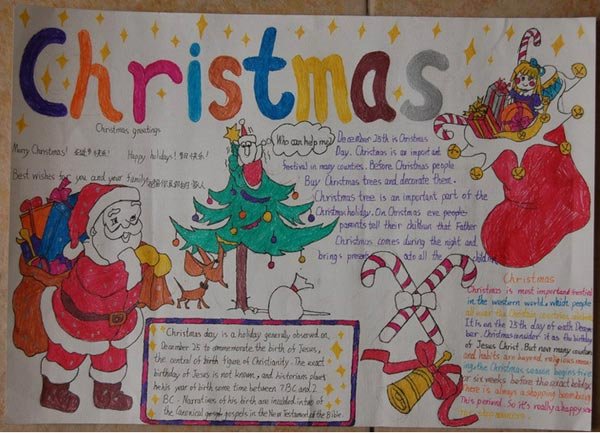 Christmas
Christmas greetings
Merry Christmas! 圣诞节快乐!
Happy holidays! 节日快乐!
Best wishes for you and your family
Who can help me?
December 25th is Christmas
Day. Christmas is an important
festival in many counties. Before Christmas people
Buy Christmas trees and decorate them.
Christmas tree is an important part of the
Christmas holiday. On Christmas eve people
parents tell their children that Father
Christmas comes during the night and
brings present to all the children
Christmas day is a holiday generally observed on
December 25 to commemorate the birth of Jesus,
the central of birth figure of Christianity. The exact
birthday of Jesus is not known, and historians place
his year of birth some time between 7BC and 2
BC. Narratives of his birth are included in two of
the Canonical gospels in the New Testament of the Bible.
Christmas
Christmas is most important festival
in the western world. Which people
all over the Christian countries
It is on the 25th day of each Decem-
ber. Christmas consider it as the birthday
of Jesus Christ. But now many customs
and habits are beyond religious
ing. the Christmas season begins five
or six weeks before the exact holiday.
There is always a shopping boom during
This period. So it's really a happy